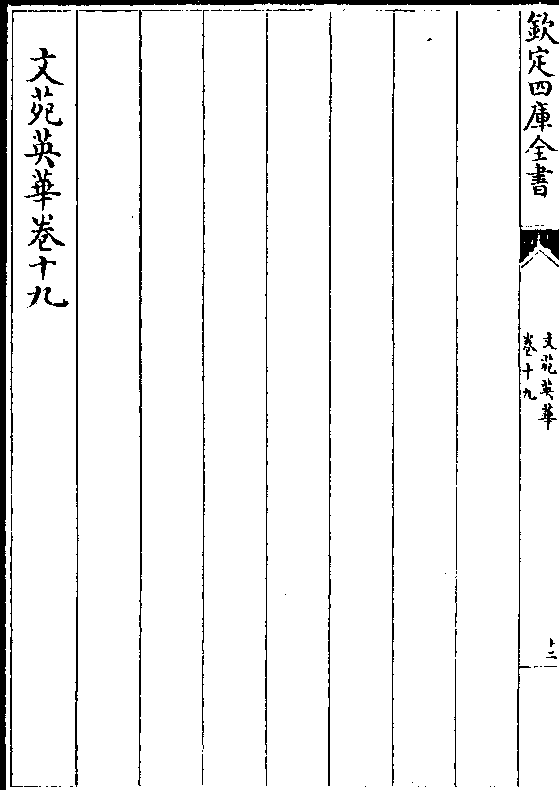 欽定四庫全書
文苑英華
卷十九
十二
文苑英華卷十九